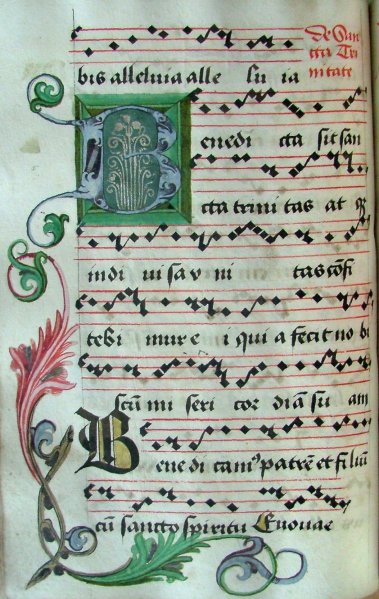 De San
cta Tri
nitate
bis alleluia alle lu ia
Benedi cta sit san
cta trini tas at q̄
indi ui sa v ni tas cōfi
tebi mur e i qui a fecit no bi
scū mi seri cor diā su am
Bene di cam⁹ patrē et filiū
cū sancto spiritu Euouae